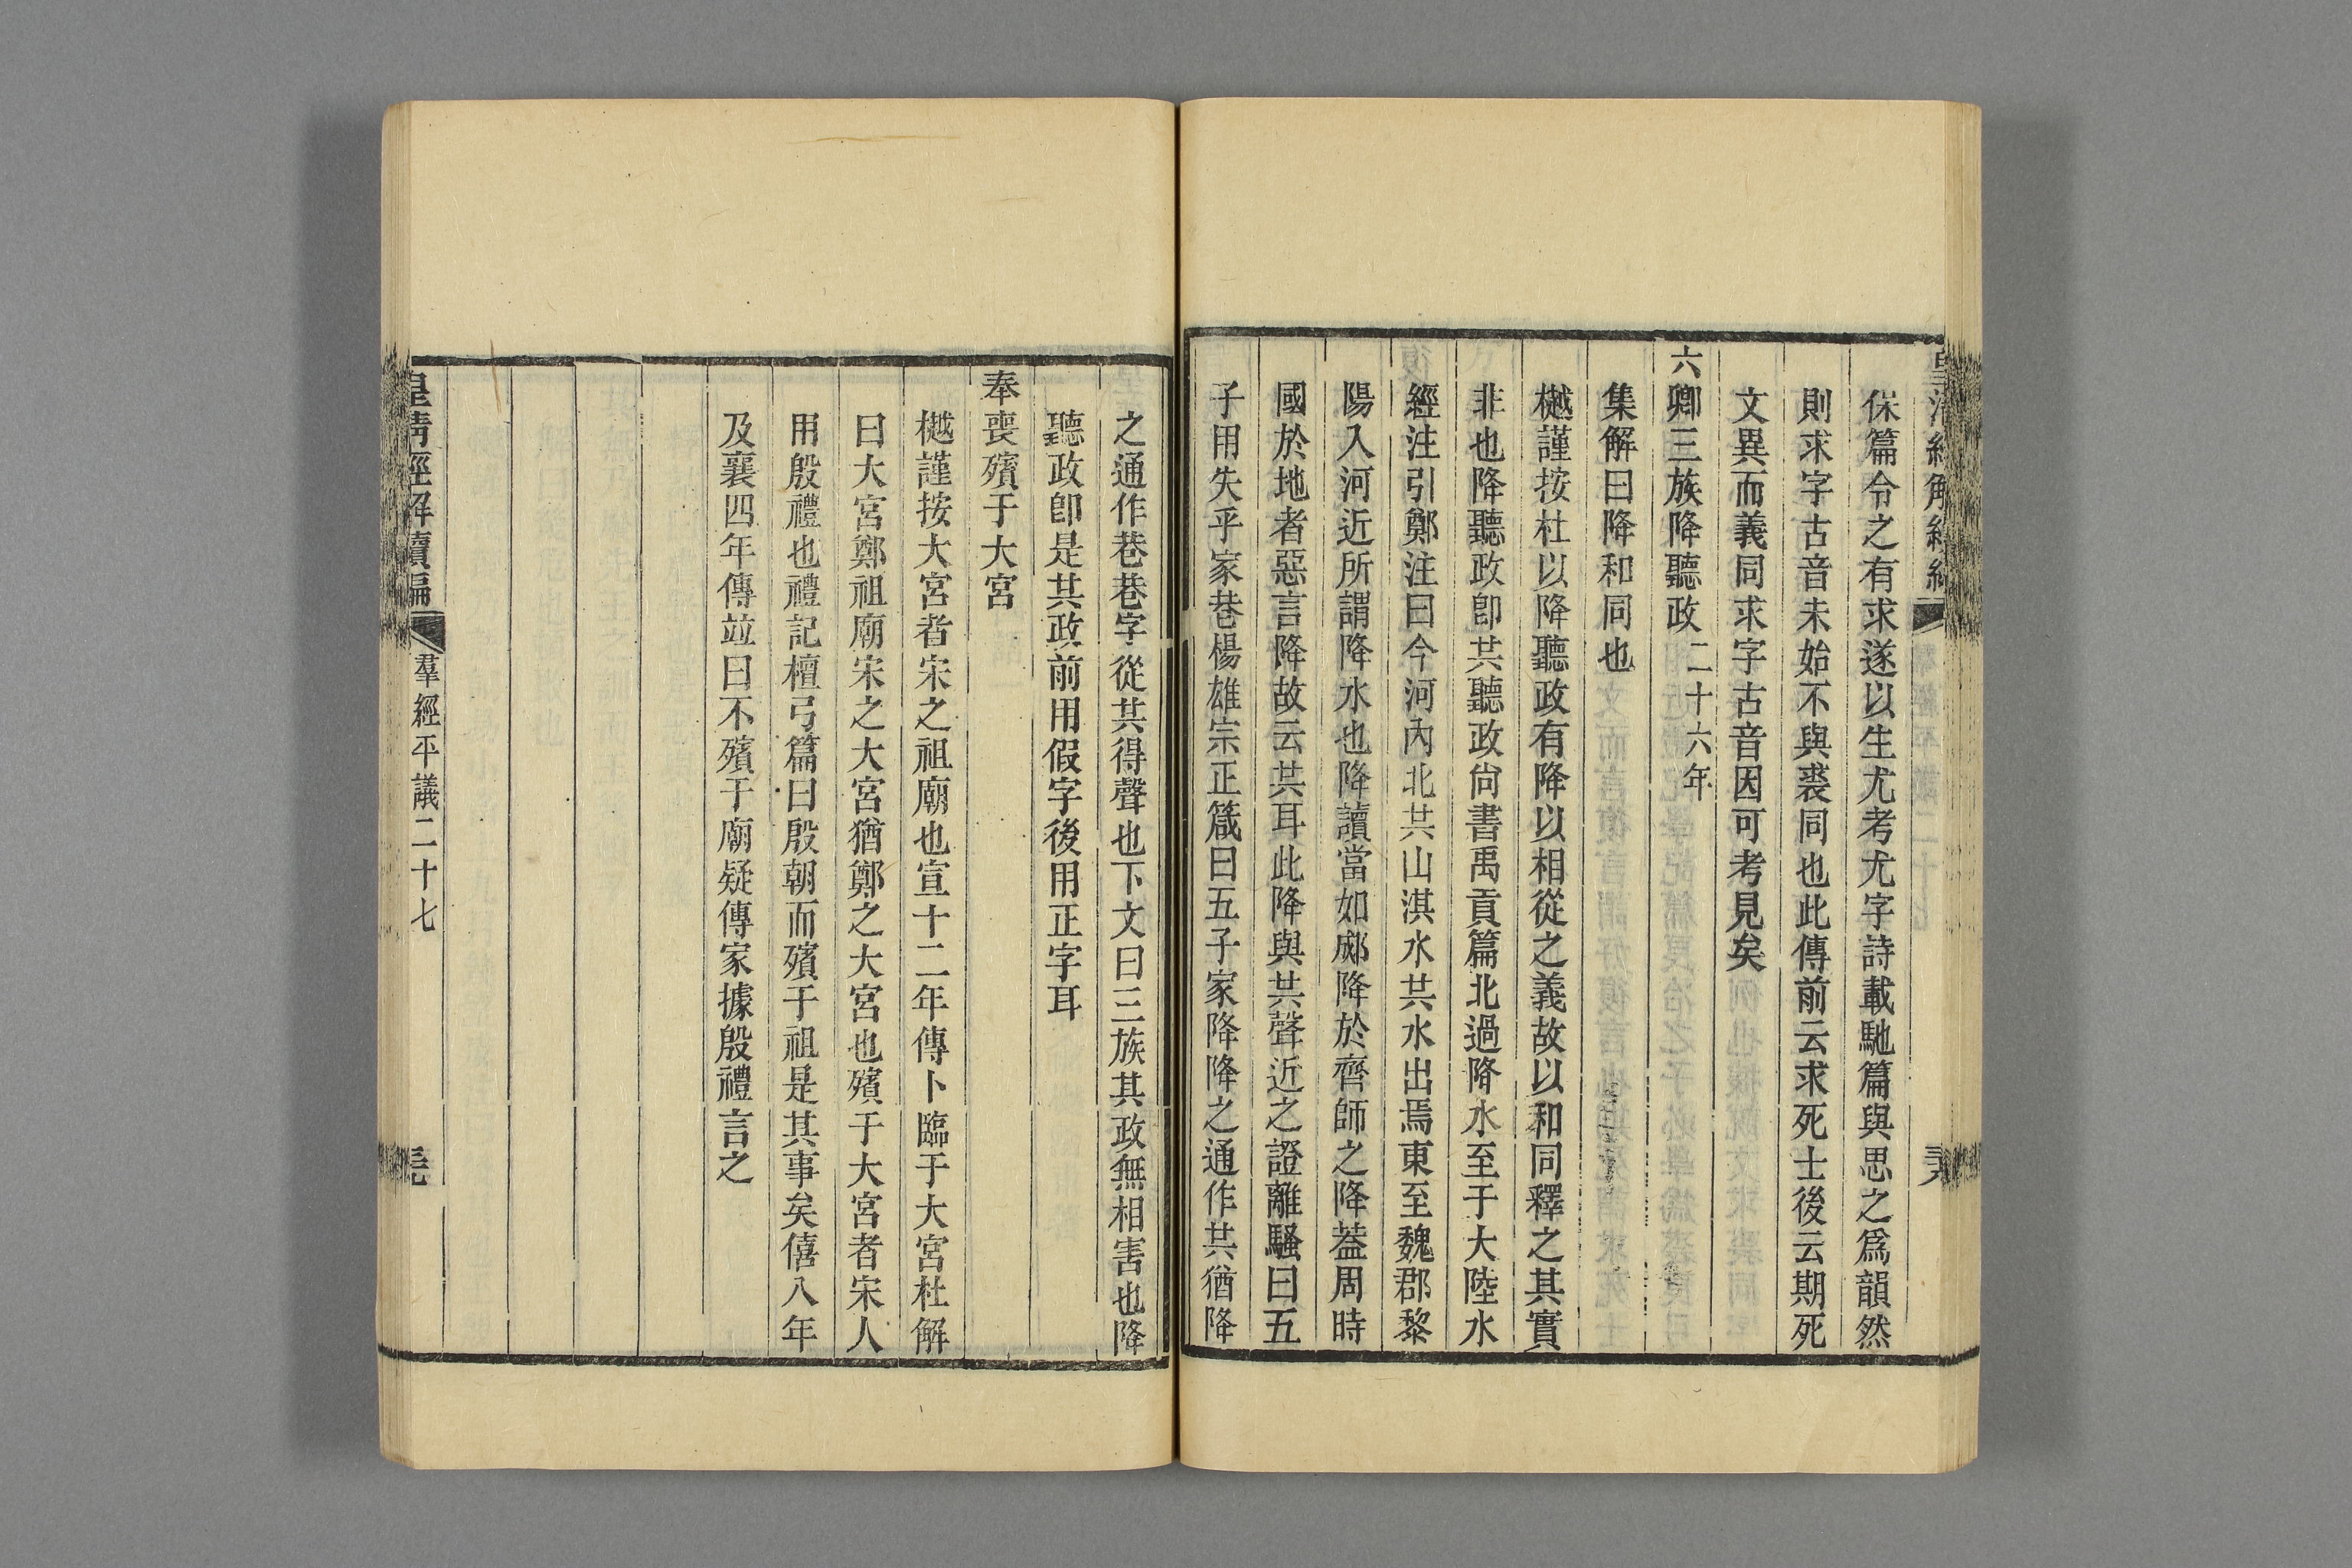 保篇令之有求遂以生尤考尤字詩載馳篇與思之爲韻然
則求字古音未始不與裘同也此傳前云求死士後云期死
文異而義同求字古音因可考見矣
六卿三族降聽政二十六年
集解曰降和同也
樾謹按杜以降聽政有降以相從之義故以和同釋之其實
非也降聽政卽共聽政尙書禹貢篇北過降水至于大陸水
經注引鄭注曰今河內北共山淇水共水出焉東至魏郡黎
陽入河近所謂降水也降讀當如郕降於齊師之降葢周時
國於地者惡言降故云共耳此降與共聲近之證離騷曰五
子用失乎家巷楊雄宗正箴曰五子家降降之通作共猶降
之通作巷巷字從共得聲也下文曰三族共政無相害也降
聽政卽是共政前用假字後用正字耳
奉喪殯于大宮
樾謹按大宮者宋之祖廟也宣十二年傳卜臨于大宮杜解
曰大宮鄭祖廟宋之大宮猶鄭之大宮也殯于大宮者宋人
用殷禮也禮記檀弓篇曰殷朝而殯于祖是其事矣僖八年
及襄四年傳竝曰不殯于廟疑傳家據殷禮言之
皇清經解續編 羣經平議二十七